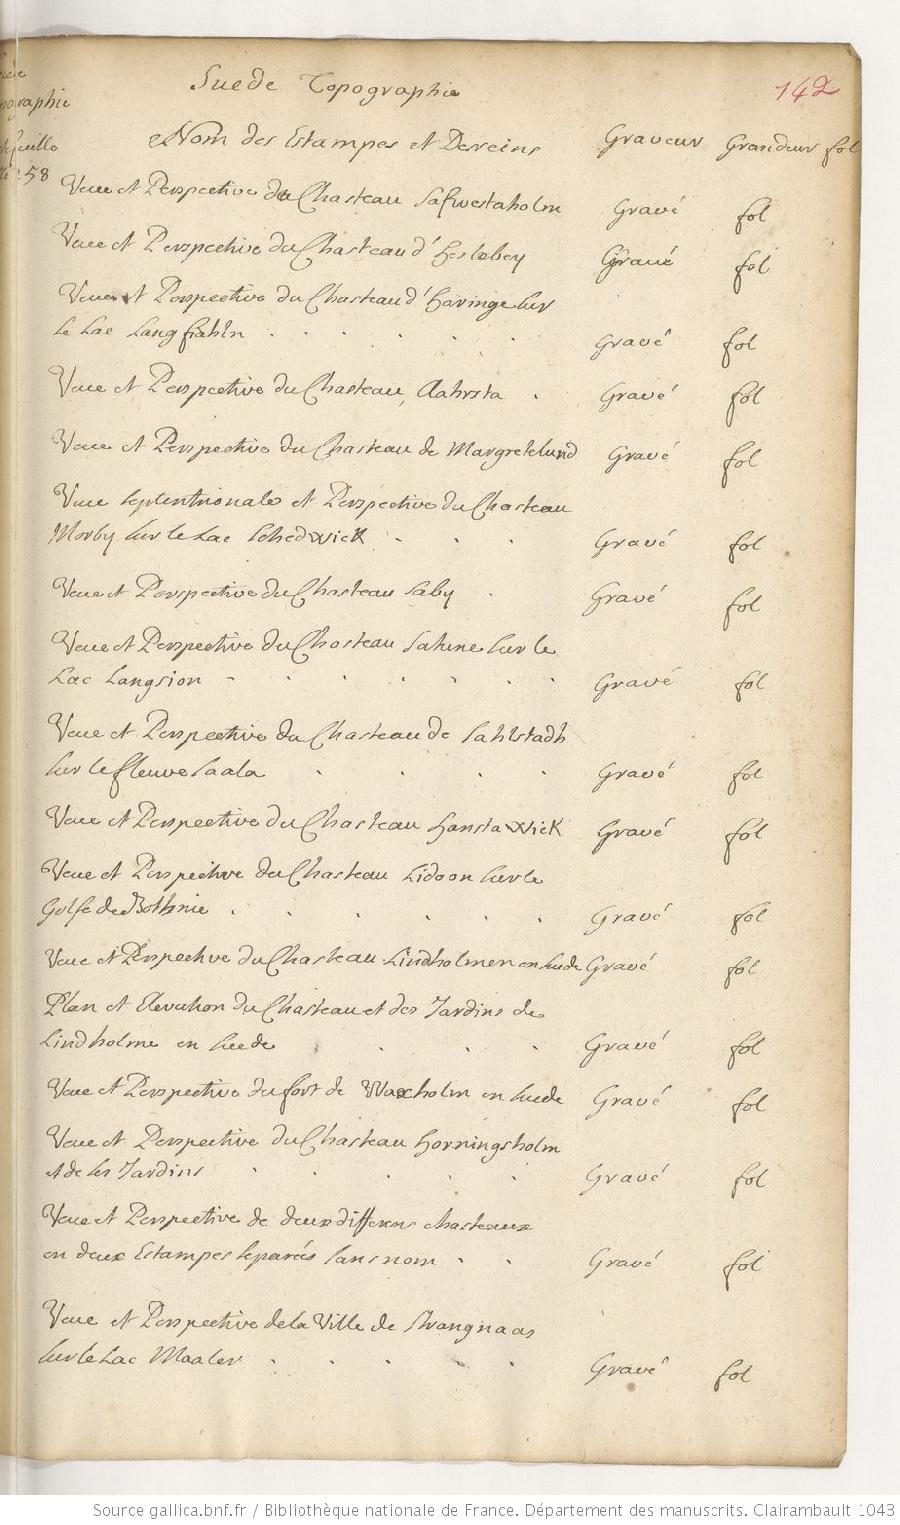 Suede Topographie
142
ographie
feuille
58
Nom des Estampes et Desseins Graveur Grandeur fol
Veue et Perspective du Chasteau Safwestaholm Gravé fol
Veue et Perspective du Chasteau d'Heslebey Gravé fol
Veue et Perspective du Chasteau d'Haringe sur
le Lac Lang fiahln Gravé fol
Veue et Perspective du Chasteau Aahrsta Gravé fol
Veue et Perspective du Chasteau de Margretelund Gravé fol
Veue septentrionale et Perspective du Chasteau
Morby sur le Lac Schedwick Gravé fol
Veue et Perspective du Chasteau Saby Gravé fol
Veue et Perspective du Chasteau Satune sur le
Lac Langsion Gravé fol
Veue et Perspective du Chasteau de Sahlstadh
sur le fleuve Saala Gravé fol
Veue et Perspective du Chasteau Hanstawick Gravé fol
Veue et Perspective du Chasteau Lidoon sur le
Golfe de Bothnie Gravé fol
Veue et Perspective du Chasteau Lindholmen en suede Gravé fol
Plan et Elevation du Chasteau et des Jardins de
Lindholme en suede Gravé fol
Veue et Perspective du fort de Waxholm en suede Gravé fol
Veue et Perspective du Chasteau Horningsholm
et de ses Jardins Gravé fol
Veue et Perspective de deux differens chasteaux
en deux Estampes separées sans nom Gravé fol
Veue et Perspective de la Ville de Strangnaas
sur le Lac Maaler Gravé fol
Source gallica.bnf.fr / Bibliothèque nationale de France. Département des manuscrits. Clairambault 1043